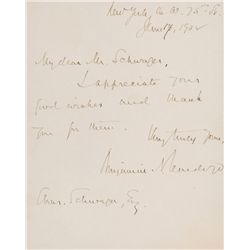 New York, 6 W. 75" St.
My dear Mr. Schwager,
I appreciate your
good wishes and thank
you for them.
Very truly yours,
Benjamin
Chas. Schwager, Esq.